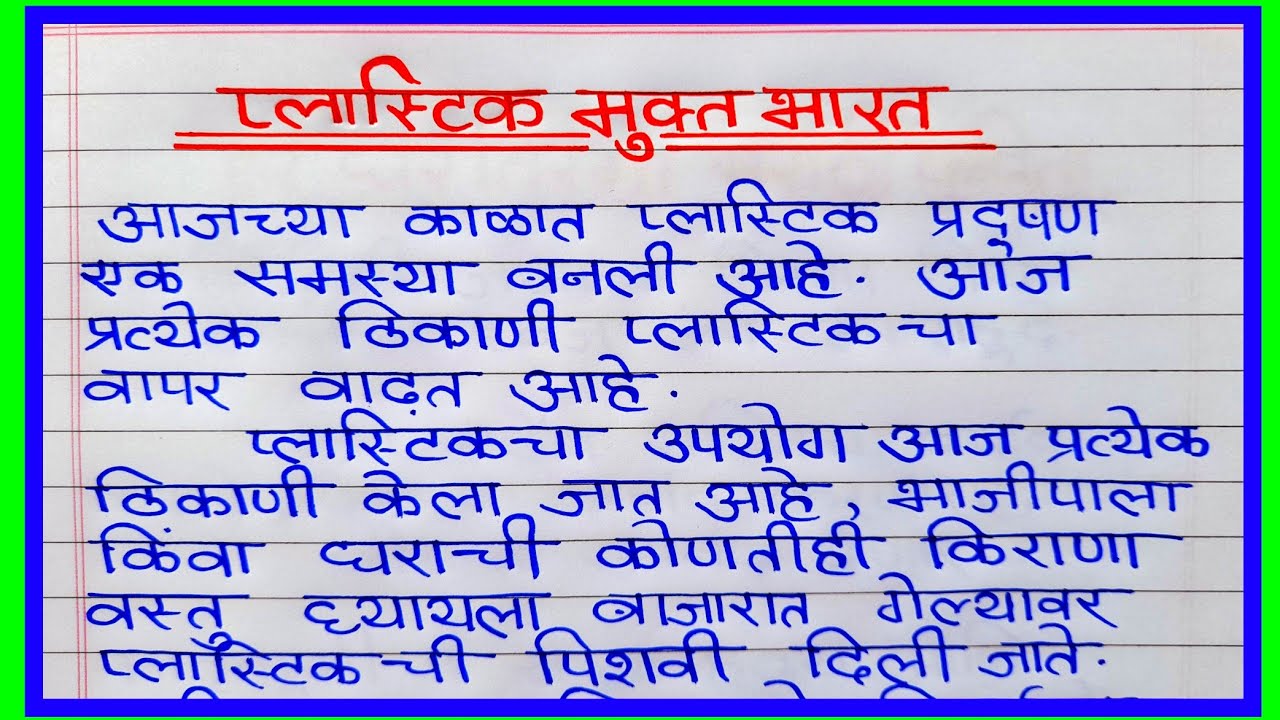 प्लास्टिक मुक्त भारत
आजच्या काळात प्लास्टिक प्रदूषण
एक समस्या बनली आहे. आज
प्रत्येक ठिकाणी प्लास्टिकचा
वापर वाढत आहे.
प्लास्टिकचा उपयोग आज प्रत्येक
ठिकाणी केला जात आहे, भाजीपाला
किंवा घराची कोणतीही किराणा
वस्तु घ्यायला बाजारात गेल्यावर
प्लास्टिकची पिशवी दिली जाते.